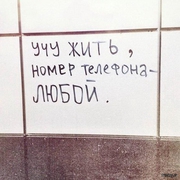 учу жить,
номер телефона—
ЛЮБОЙ.